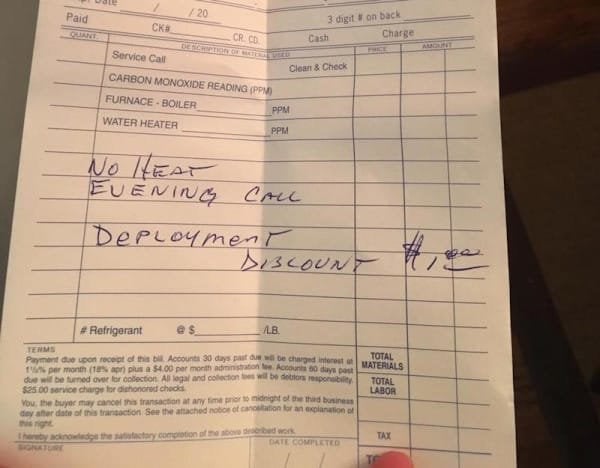 Date / / 20 3 digit # on back
Paid CK# CR. CD. Cash Charge
QUANT. DESCRIPTION OF MATERIAL USED PRICE AMOUNT
Service Call Clean & Check
CARBON MONOXIDE READING (PPM)
FURNACE - BOILER PPM
WATER HEATER PPM
NO HEAT
EVENING CALL
DePLOYmENT
DISCOUNT $1,00
# Refrigerant @ $ /LB.
TERMS
Payment due upon receipt of this bill. Accounts 30 days past due will be charged interest at
1½% per month (18% apr) plus a $4.00 per month administration fee. Accounts 60 days past
due will be turned over for collection. All legal and collection fees will be debtors responsibility.
$25.00 service charge for dishonored checks.
You, the buyer may cancel this transaction at any time prior to midnight of the third business
day after date of this transaction. See the attached notice of cancellation for an explanation of
this right.
I hereby acknowledge the satisfactory completion of the above described work.
SIGNATURE DATE COMPLETED
/ /
TOTAL
MATERIALS
TOTAL
LABOR
TAX